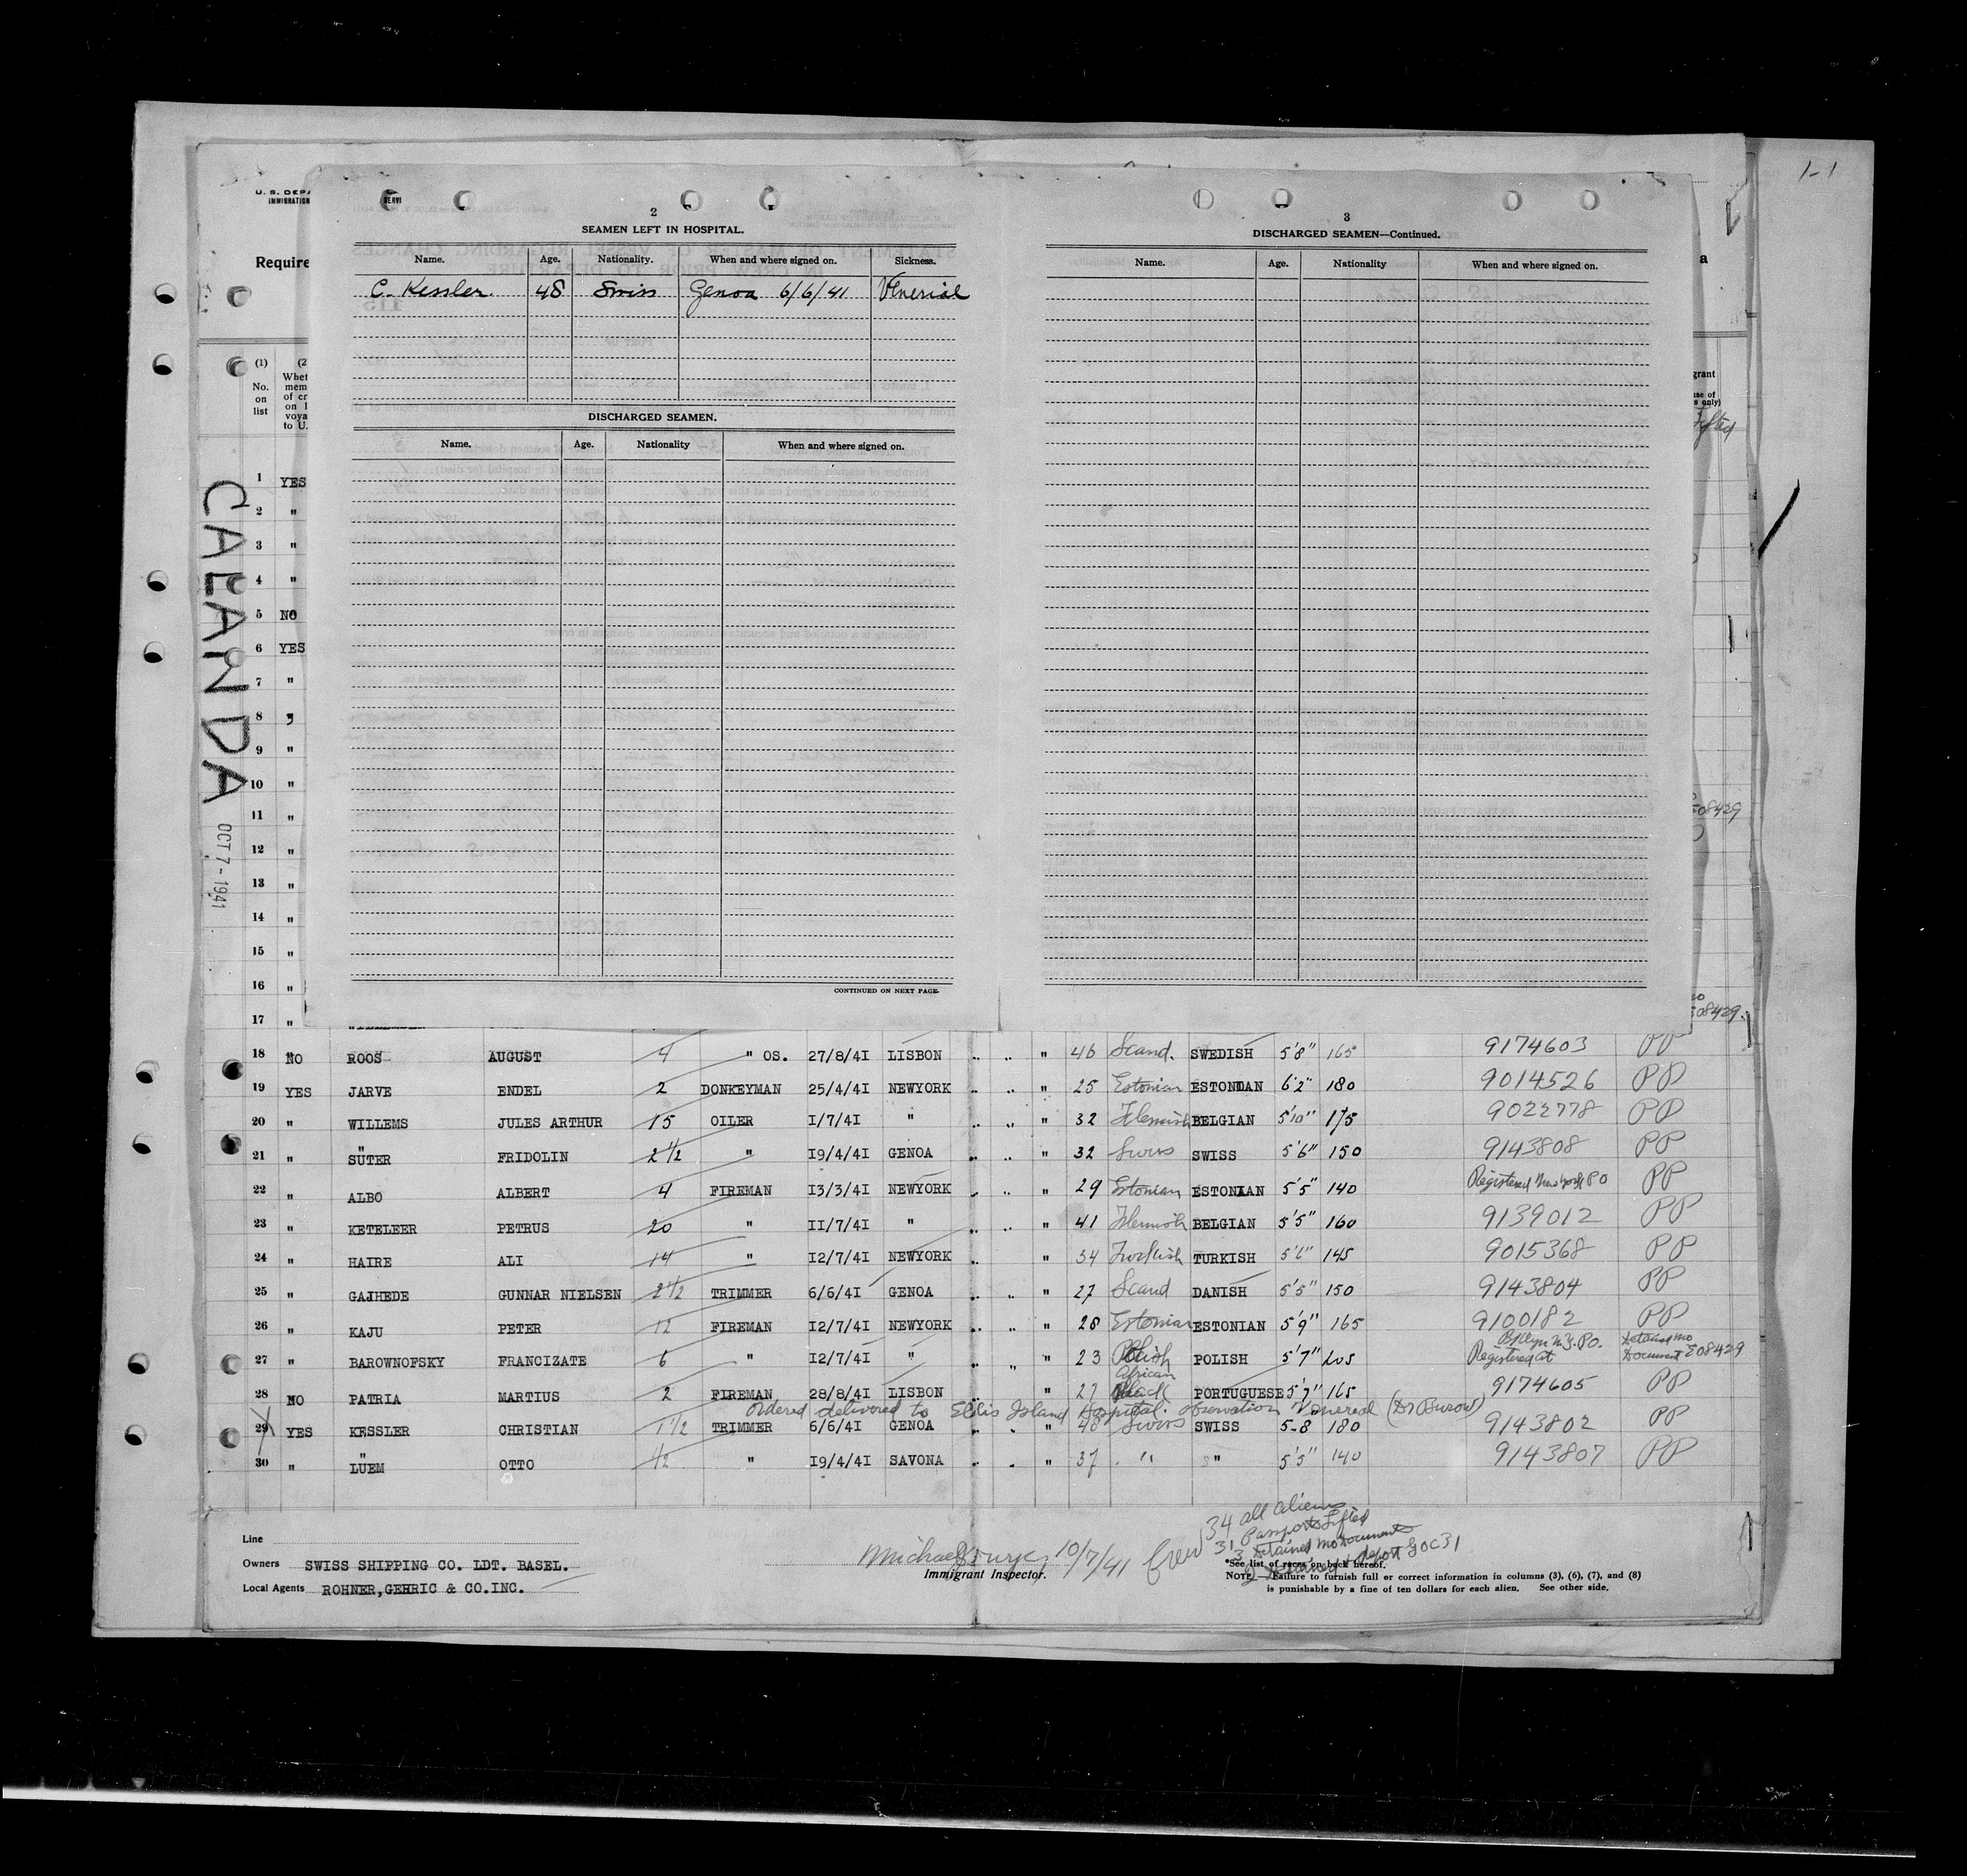 1-1
U. S. DEPA
IMMIGRATION
SERVI
Require
a
2
SEAMEN LEFT IN HOSPITAL.
Name. Age. Nationality. When and where signed on. Sickness.
C. Kessler 48 Swiss Genoa 6/6/41 Venerial
DISCHARGED SEAMEN.
Name. Age. Nationality When and where signed on.
CONTINUED ON NEXT PAGE.
3
DISCHARGED SEAMEN—Continued.
Name. Age. Nationality When and where signed on.
(1) (2
No. on list
Whet
mem
of cr
on l
voya
to U.
grant
use of
s only)
CALANDA
OCT 7 - 1941
1 YES
2 "
3 "
4 "
5 NO
6 YES
7 "
8 "
9 "
10 "
11 "
08429
12 "
13 "
14 "
15 "
16 "
17 "
08429.
18 NO ROOS AUGUST 4 " OS. 27/8/41 LISBON " " " 46 Scand. SWEDISH 5'8" 165 9174603 PP
19 YES JARVE ENDEL 2 DONKEYMAN 25/4/41 NEWYORK " " " 25 Estonian ESTONIAN 6'2" 180 9014526 PP
20 " WILLEMS JULES ARTHUR 15 OILER 1/7/41 " " " " 32 Flemish BELGIAN 5'10" 175 9022778 PP
21 " SUTER FRIDOLIN 2 1/2 " 19/4/41 GENOA " " " 32 Swiss SWISS 5'6" 150 9143808 PP
22 " ALBO ALBERT 4 FIREMAN 13/3/41 NEWYORK " " " 29 Estonian ESTONIAN 5'5" 140 Registered New York PO PP
23 " KETELEER PETRUS 20 " 11/7/41 " " " " 41 Flemish BELGIAN 5'5" 160 9139012 PP
24 " HAIRE ALI 14 " 12/7/41 NEWYORK " " 34 Turkish TURKISH 5'6" 145 9015368 PP
25 " GAJHEDE GUNNAR NIELSEN 2 1/2 TRIMMER 6/6/41 GENOA " " " 27 Scand DANISH 5'5" 150 9143804 PP
26 " KAJU PETER 12 FIREMAN 12/7/41 NEWYORK " " " 28 Estonian ESTONIAN 5'9" 165 9100182 PP
27 " BAROWNOFSKY FRANCIZATE 6 " 12/7/41 " " " " 23 Polish POLISH 5'7" 205 Registered at Bklyn N.Y. P.O. Detained no Document E08429
28 NO PATRIA MARTIUS 2 FIREMAN 28/8/41 LISBON " " 27 African Black PORTUGUESE 5'7" 165 9174605 PP
Ordered delivered to Ellis Island Hospital. observation Venereal (Dr Burow)
29 YES KESSLER CHRISTIAN 1 1/2 TRIMMER 6/6/41 GENOA " " " 48 Swiss SWISS 5-8 180 9143802 PP
30 " LUEM OTTO 1/2 " 19/4/41 SAVONA " " " 37 " " 5'5" 140 9143807 PP
Line
Owners SWISS SHIPPING CO. LDT. BASEL.
Local Agents ROHNER, GEHRIC & CO.INC.
Michael 10/7/41
Immigrant Inspector.
Crew 34 all aliens
31 Passports Lifted
3 Detained no Documents
*See list of races on back hereof.
NOTE.—Failure to furnish full or correct information in columns (3), (6), (7), and (8)
is punishable by a fine of ten dollars for each alien. See other side.